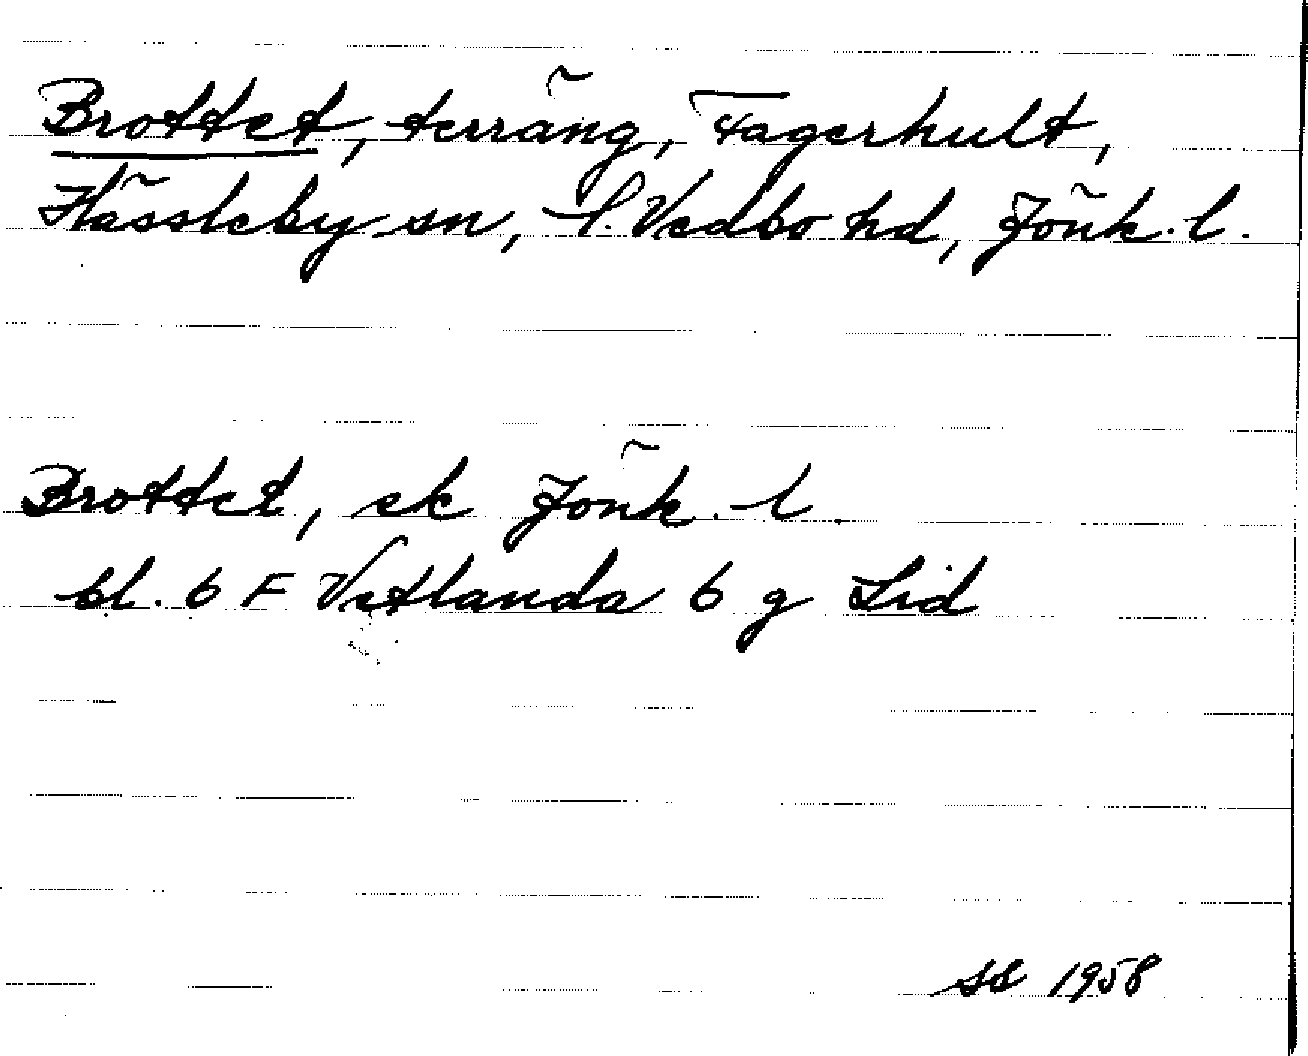 Brottet, terräng, Fagerhult,
Hässleby sn, S. Vedbo hd, Jönk. l.
Brottet, ek Jönk. l.
bl. 6 F Vetlanda 6 g Lid
SS 1958